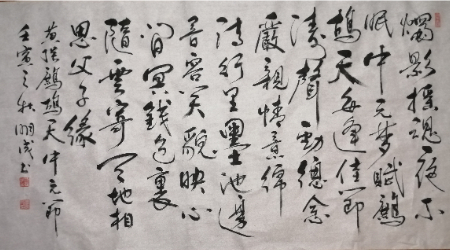 燭影搖魂夜不
眠中元夢賦鷓
鴣天每逢佳節
濤聲動總念
嚴親情意綿
詩行里墨池邊
音容笑貌映心
間冥錢包裹
隨雲寄天地相
思父子緣
黄 鷓鴣天中元節
壬寅之秋 成书